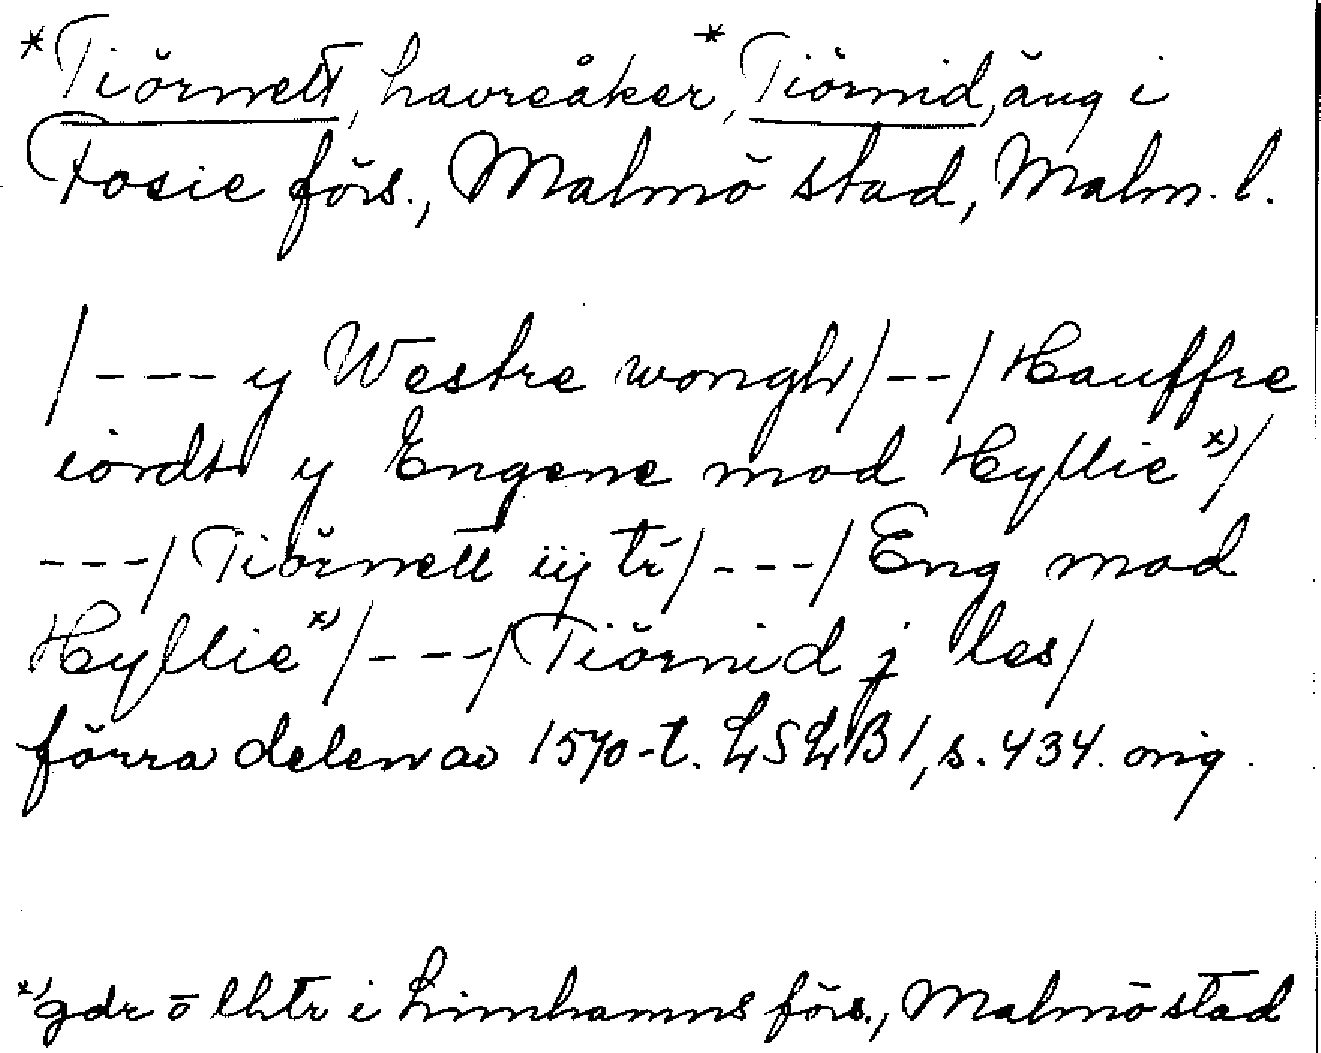 *Tiörnett, havreåker, *Tiörnid, äng i
Fosie förs., Malmö stad, Malm. l.
/--- y Westre wongh/--/Hauffre
iördt y Engene mod Hyllie x)/
---/Tiörnett iij tr/---/Eng mod
Hyllie x)/---/Tiörnid j les/
förra delen av 1570-t. LSLB 1, s. 434. orig.
x) gdr o lhtr i Limhamns förs., Malmö stad